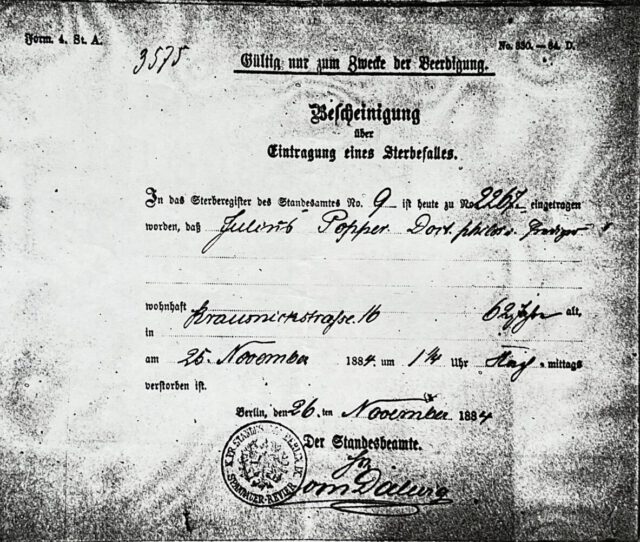 Form. 4. St. A.
No. 850. — 84. D.
3575
Gültig nur zum Zwecke der Beerdigung.
Bescheinigung
über
Eintragung eines Sterbefalles.
In das Sterberegister des Standesamtes No. 9 ist heute zu No 2267. eingetragen
worden, daß Julius Popper Doct. philos. u. Prediger
wohnhaft Krausnickstraße 16 62 Jahre alt,
in
am 25. November 1884 um Uhr Nach-mittags
verstorben ist.
Berlin, den 26 ten November 1884
Der Standesbeamte.